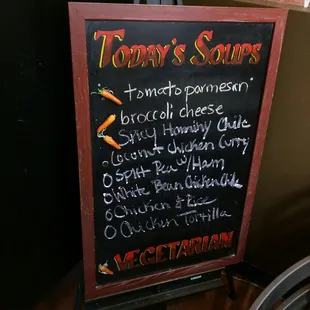 TODAY'S SOUPS
tomato parmesan
broccoli cheese
Spicy Hominy Chile
Coconut chicken Curry
Split Pea w/ Ham
White Bean Chicken Chile
Chicken & Rice
Chicken Tortilla
VEGETARIAN